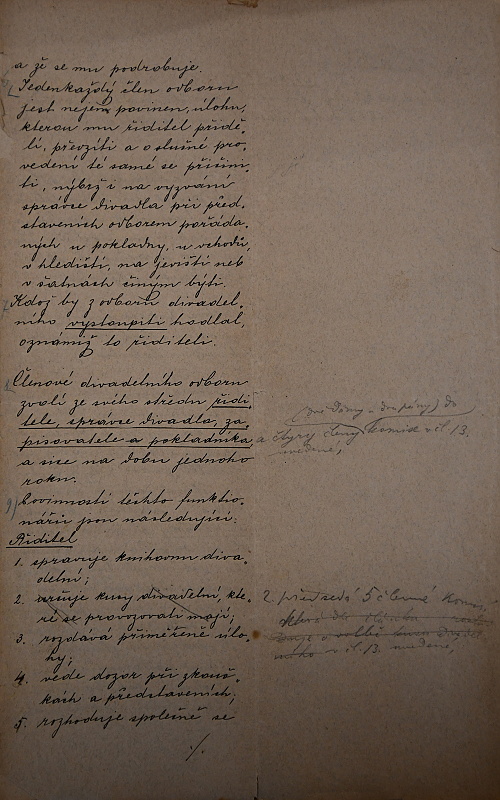 a že se mu podrobuje.
Jedenkaždý člen odboru
jest nejen povinen, úlohu,
kterou mu řiditel přidě-
lí, převzíti a o slušné pro-
vedení té samé se přičini-
ti, nýbrž i na vyzvání
správce divadla při před-
staveních odborem pořáda-
ných u pokladny, u vchodu,
v hledišti, na jevišti neb
v šatnách činným býti.
Kdož by z odboru divadel-
ního vystoupiti hodlal,
oznamiž to řiditeli.
Členové divadelního odboru
zvolí ze svého středu řidi-
tele, správce divadla, za-
pisovatele a pokladníka
a sice na dobu jednoho
roku.
9) Povinnosti těchto funkcio-
nářů jsou následující:
Řiditel
1. spravuje knihovnu diva-
delní;
2. určuje kusy divadelní, kte-
ré se provozovati mají;
3. rozdává přiměřené úlo-
hy;
4. vede dozor při zkouš-
kách a představeních;
5. rozhoduje společně se
./.
(dvě dámy a dva pány) do
a čtyry členy komise v čl. 13.
uvedené,
2. předsedá 5 členné komisi,
v čl. 13. uvedené,